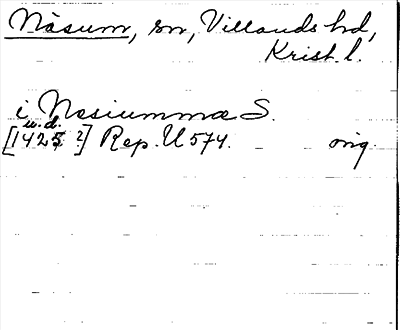 Näsum, sn, Villands hd,
Krist. l.
i Nesiummæ S.
u.d.
[1425 ?] Rep. U 574. orig.